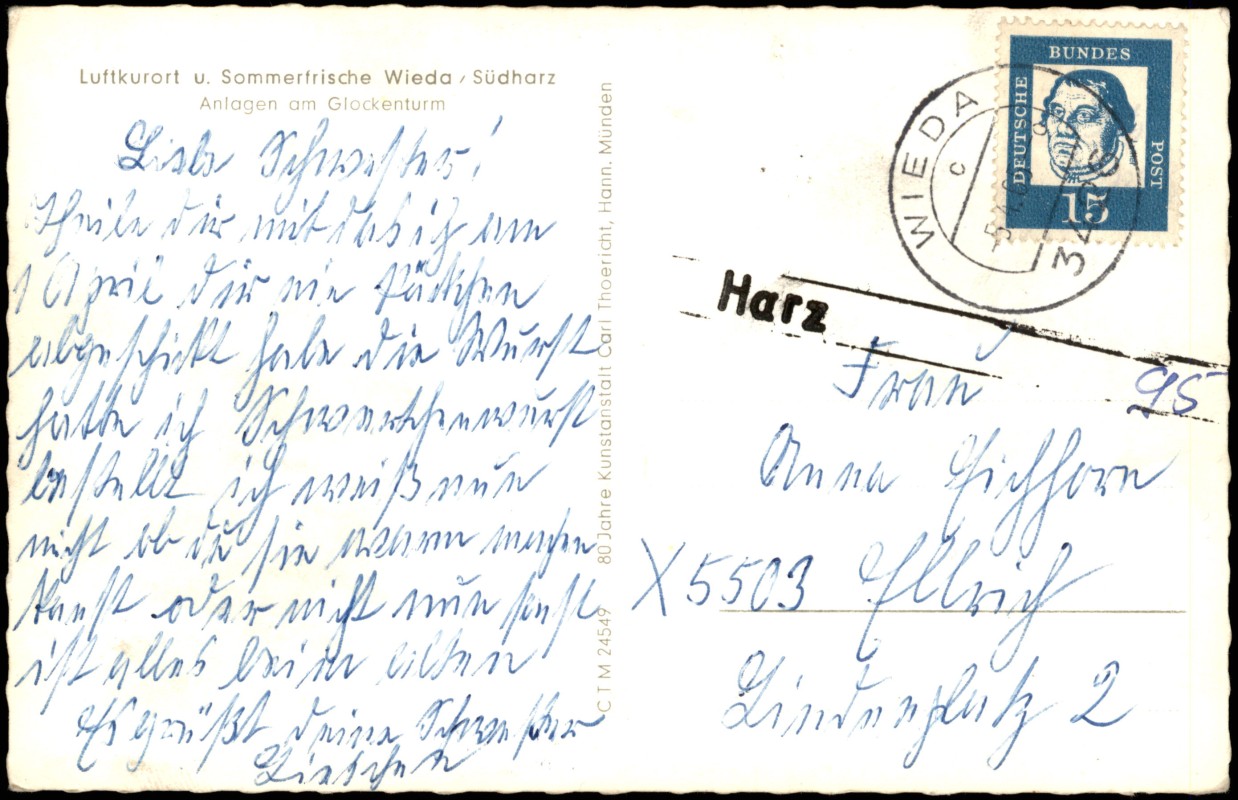 Luftkurort u. Sommerfrische Wieda / Südharz
Anlagen am Glockenturm
Liebe Schwester!
Theile dir mit das ich am
1 April dir ein Päckchen
abgeschickt habe die Wurst
hatte ich Schwartenwurst
bestellt ich weiß nun
nicht ob du sie warm machen
kanst oder nicht nun sonst
ist alles beim alten
Es grüßt deine Schwester
Lieschen
80 Jahre Kunstanstalt Carl Thoericht, Hann. Münden
CTM 24549
DEUTSCHE
BUNDES
POST
15
WIEDA
c
Harz
Frau
95
Anna Eichhorn
X5503 Ellrich
Lindenplatz 2